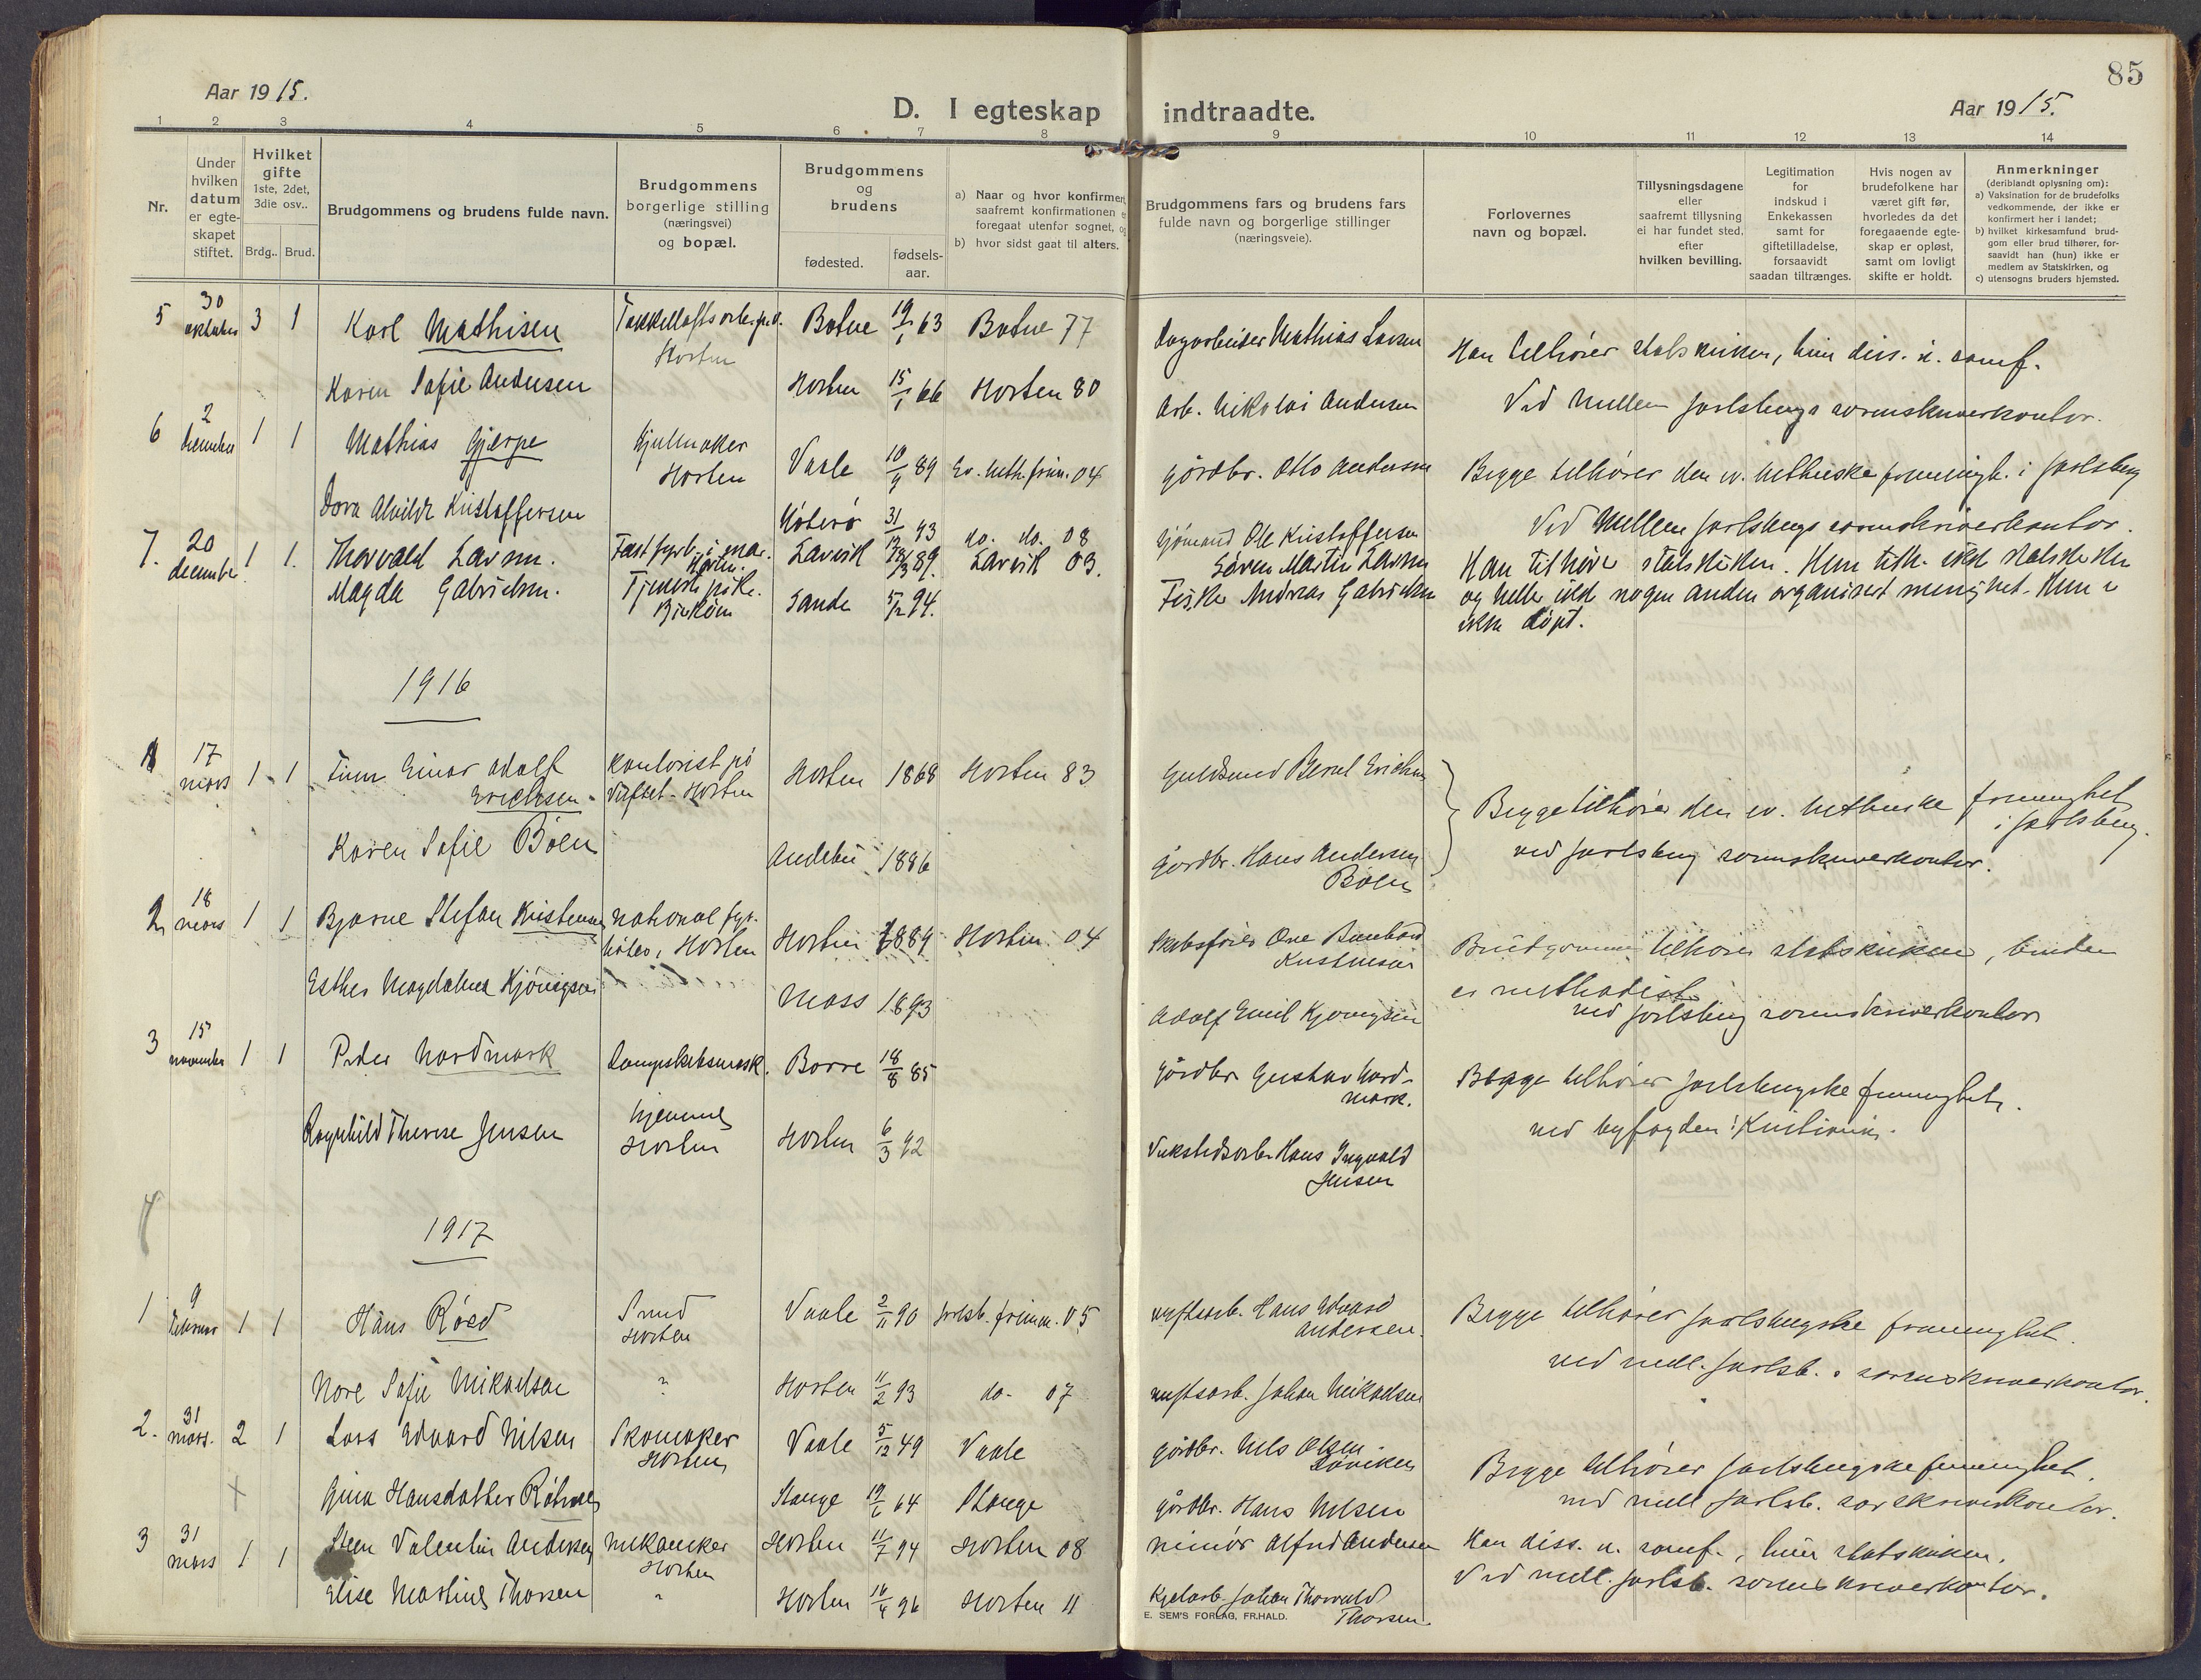 85
Aar 1915.
D. I egteskap indtraadte.
Aar 1915.
1 2 3 4 5 6 7 8 9 10 11 12 13 14
Nr.
Under hvilken datum er egteskapet stiftet.
Hvilket gifte 1ste, 2det, 3die osv..
Brdg.. Brud.
Brudgommens og brudens fulde navn.
Brudgommens borgerlige stilling (næringsvei) og bopæl.
Brudgommens og brudens
fødested. fødsels-aar.
a) Naar og hvor konfirmert saafremt konfirmationen e foregaat utenfor sognet, og
b) hvor sidst gaat til alters.
Brudgommens fars og brudens fars fulde navn og borgerlige stillinger (næringsveie).
Forlovernes navn og bopæl.
Tillysningsdagene eller saafremt tillysning ei har fundet sted, efter hvilken bevilling.
Legitimation for indskud i Enkekassen samt for giftetilladelse, forsaavidt saadan tiltrænges.
Hvis nogen av brudefolkene har været gift før, hvorledes da det foregaaende egteskap er opløst, samt om lovligt skifte er holdt.
Anmerkninger (deriblandt oplysning om):
a) Vaksination for de brudefolks vedkommende, der ikke er konfirmert her i landet;
b) hvilket kirkesamfund brudgom eller brud tilhører, forsaavidt han (hun) ikke er medlem av Statskirken, og
c) utensogns bruders hjemsted.
5 30 oktober 3 1 Karl Mathisen Horten Botne 19/1 63 Botne 77 Dagarbeider Mathias Larsen
Han tilhører statskirken, hun diss. u. samf.
Karen Sofie Andersen Horten 15/1 66 Horten 80 Arb. Nikolai Andersen
Ved Mellem Jarlsbergs sorenskriverkontor.
6 2 december 1 1 Mathias Gjerpe Hjulmaker Horten Vaale 10/9 89 Ev. luth. frim. 04 Gårdbr. Otto Andersen
Begge tilhører den ev. lutherske frimenigh. i Jarlsberg
Dora Alvilde Kristoffersen Nøterø 31/12 93 do. do. 08 Sjømand Ole Kristoffersen
Ved Mellem Jarlsbergs sorenskriverkontor.
7. 20 december 1 1. Thorvald Larsen. Horten. Larvik 89. Larvik 03. Søren Martin Larsen
Han tilhører statskirken. Hun tilh. ikke statskirken
Magda Gabrielsen. Tjenestepike. Sande 5/12 94. Fisker Andreas Gabrielsen
og heller ikke nogen anden organisert menighet. Hun er
ikke døpt.
1916
1 17 mars 1 1 Finn Einar Adolf Erichsen Kontorist på Værftet - Horten Horten 1868 Horten 83 Guldsmed Bernt Erichsen
Begge tilhører den ev. lutherske frimenighet i Jarlsberg.
Karen Sofie Bøen Andebu 1886 Gårdbr. Hans Andersen Bøen
ved Jarlsberg sorenskriverkontor.
2 18 mars 1 1 Bjarne Stefan Kristensen Horten Horten 1889 Horten 04 Kristensen
Brudgommen tilhører statskirken, bruden
er methodist
Esther Magdalena Moss 1893 Adolf Emil
ved Jarlsberg sorenskriverkontor
3 15 november 1 1 Peder Nordmark Borre 18/8 85 Gårdbr Gustav Nordmark.
Begge tilhører Jarlsbergske frimenighet.
Ragnhild Therese Jensen hjemme Horten Horten 6/3 92 Verkstedsarb. Hans Ingvald Jensen
ved byfogden i Kristiania.
4
1917
1 9 februar 1 1 Hans Røed Smed Horten Vaale 2/11 90 Jarlsb. frimen. 05 Verftsarb. Hans Edvard Andersen.
Begge tilhører Jarlsbergske frimenighet.
Nora Sofie Mikaelsen " Horten 11/2 93 do. 07 verftsarb. Johan Mikaelsen
ved mell. Jarlsb. sorenskriverkontor.
2. 31 mars. 2 1 Lars Edvard Nilsen Skomaker Horten Vaale 5/12 49 Vaale Gårdbr. Nils Olsen
Begge tilhører Jarlsbergske frimenighet.
Gina Hansdatter Stange 64 Stange Gårdbr. Hans Nilsen
ved mell Jarlsb. sorskriverkontor.
3 31 mars 1 1 Steen Valentin Andersen mekaniker Horten Horten 11/7 94 Horten 08 Alfred Andersen
Han diss. u. samf., hun statskirken.
Elise Martine Thorsen " Horten 16/4 96 Horten 11 Kjelarb. Johan Thorvald Thorsen.
Ved mell. Jarlsb. sorenskriverkontor.
E. SEM'S FORLAG, FR.HALD.